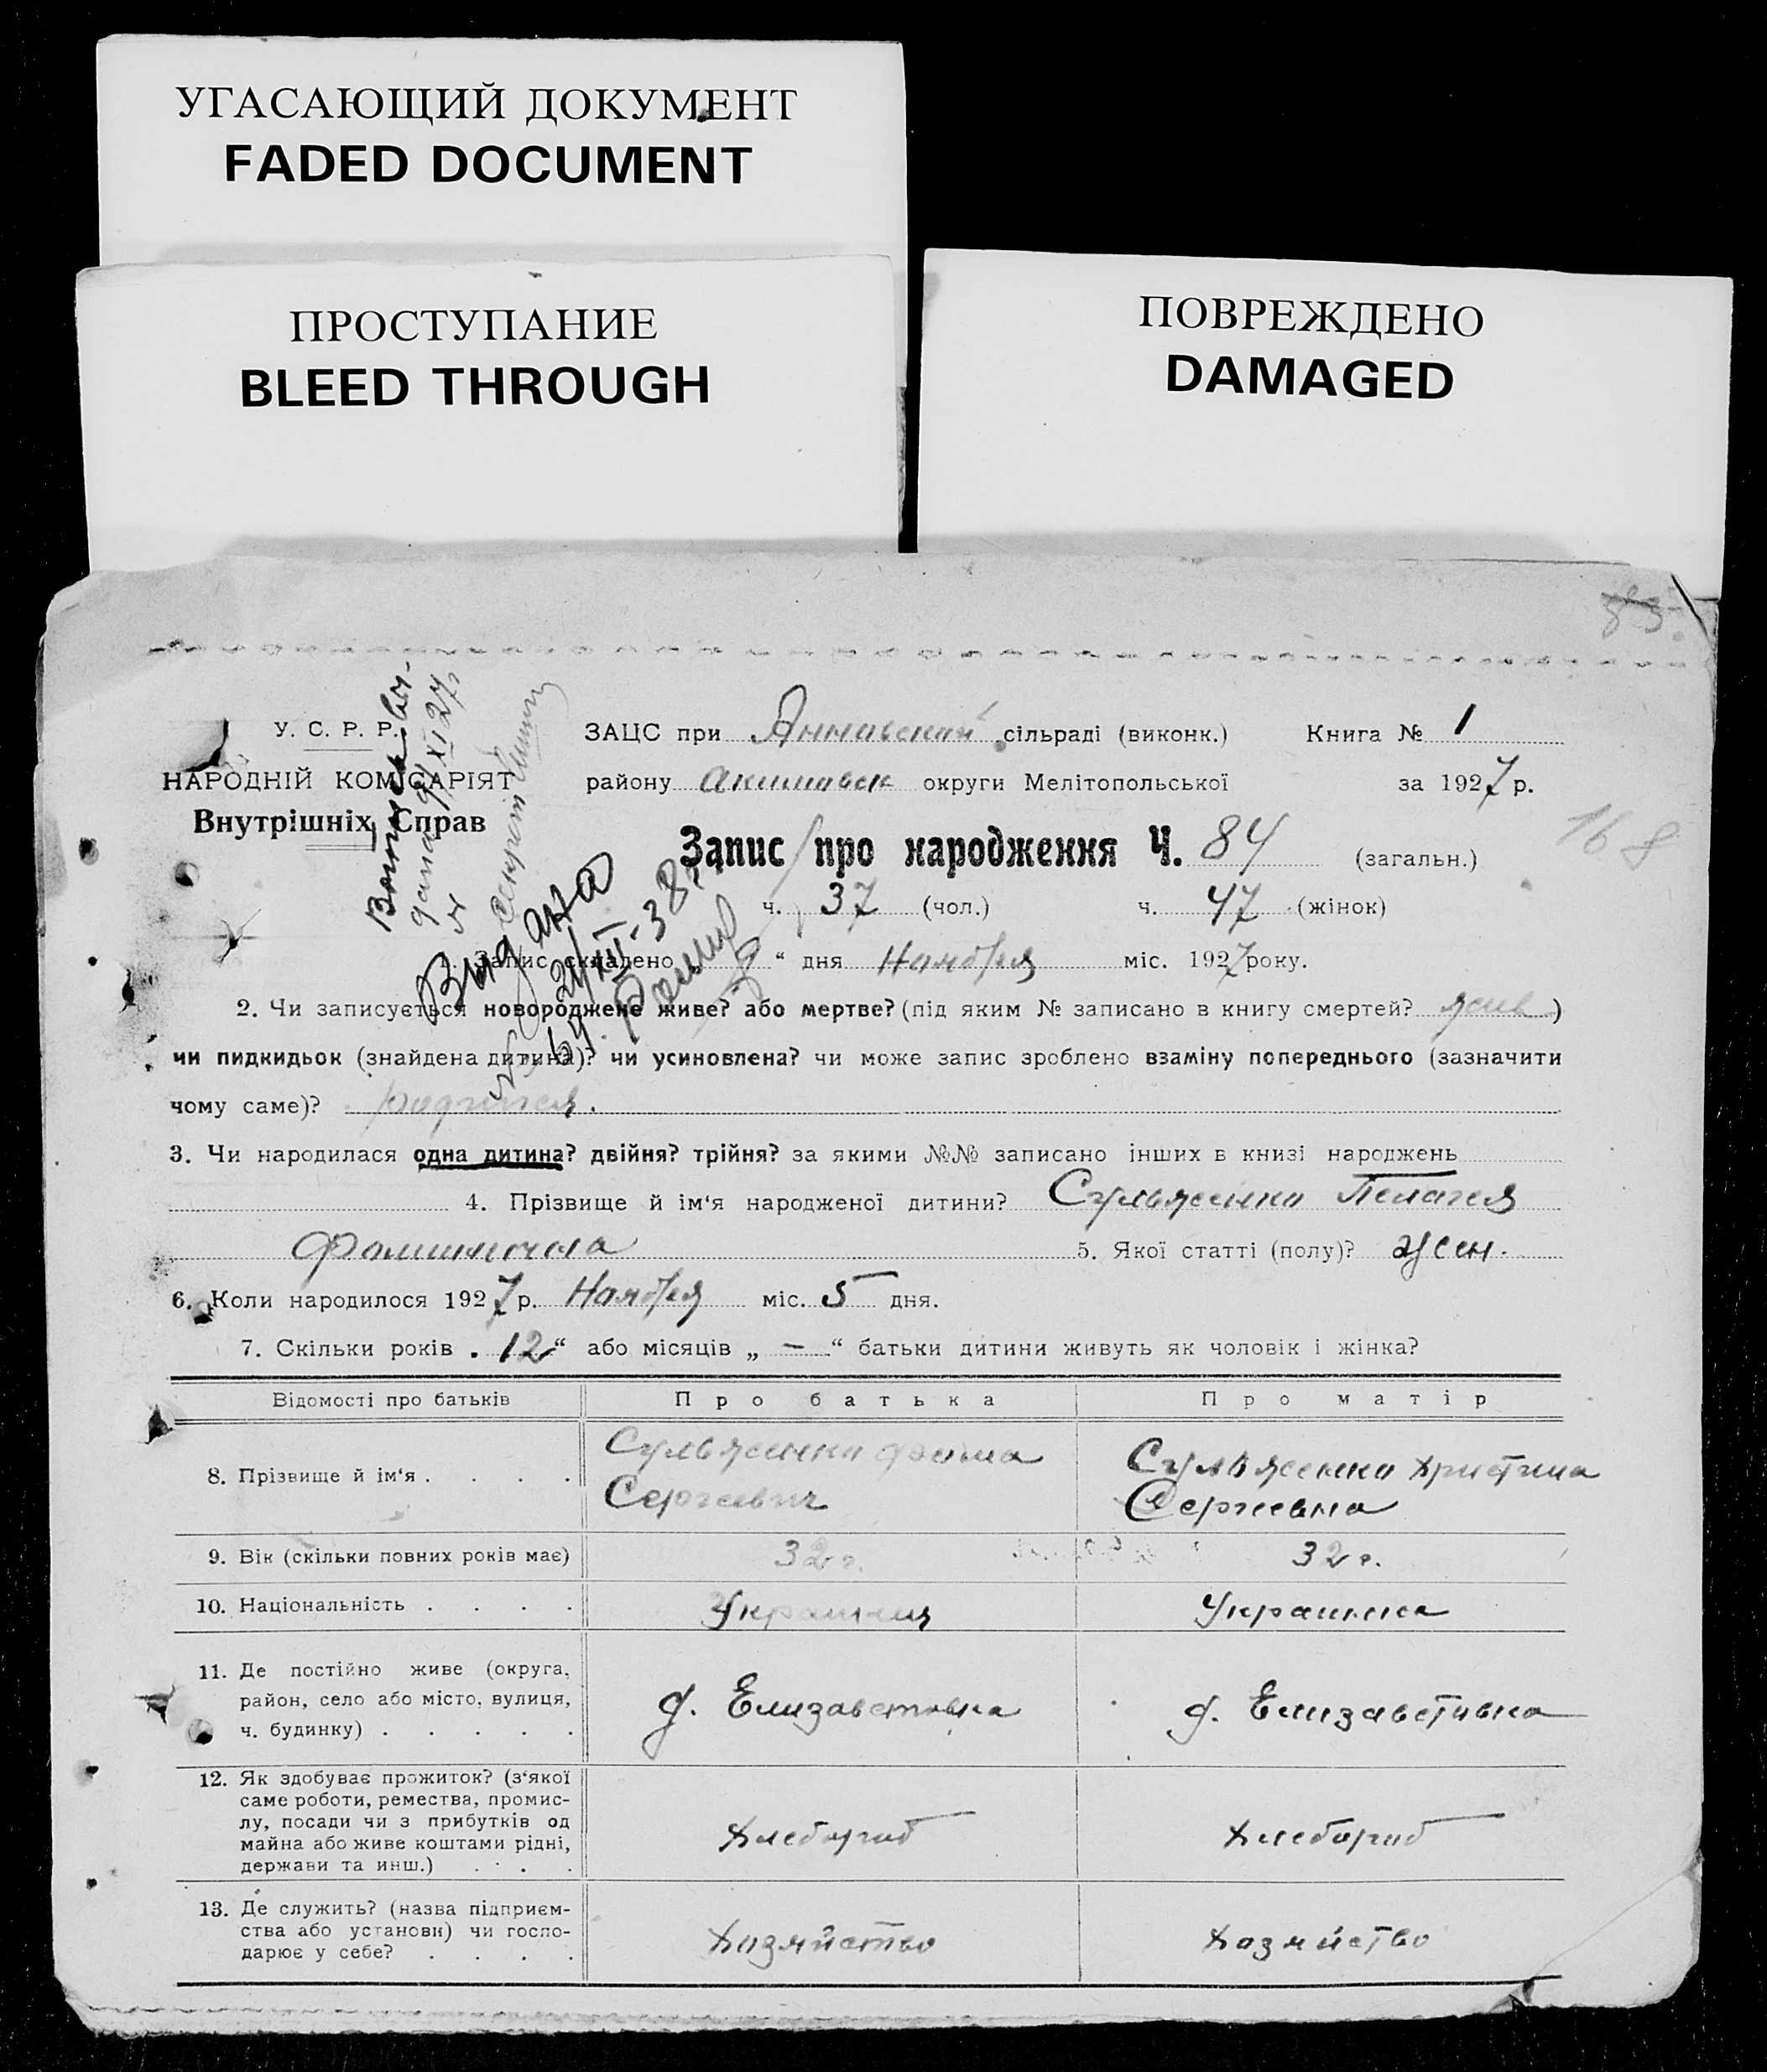 УГАСАЮЩИЙ ДОКУМЕНТ
FADED DOCUMENT
ПРОСТУПАНИЕ
BLEED THROUGH
ПОВРЕЖДЕНО
DAMAGED
У. С. Р. Р.
НАРОДНІЙ КОМІСАРІЯТ
Внутрішніх Справ
ЗАЦС при Аннавской сільраді (виконк.) Книга № 1
району Акимавск округи Мелітопольської за 1927 р.
168
Запис про народження Ч. 84 (загальн.)
ч. 37 (чол.) ч. 47 (жінок)
Видана
Запис складено 9 “ дня Наября міс. 1927 року.
2. Чи записується новороджене живе? або мертве? (під яким № записано в книгу смертей? )
чи пидкидьок (знайдена дитина)? чи усиновлена? чи може запис зроблено взаміну попереднього (зазначити
чому саме)? родился.
3. Чи народилася одна дитина? двійня? трійня? за якими №№ записано інших в книзі народжень
4. Прізвище й ім‘я народженої дитини? Сульженко Пелагея
Фоминична 5. Якої статті (полу)? жен.
6. Коли народилося 1927 р. Наября міс. 5 дня.
7. Скільки років „ 12 “ або місяців „ — “ батьки дитини живуть як чоловік і жінка?
Відомості про батьків Про батька Про матір
8. Прізвище й ім‘я . . . . Сульженко Фома Сергеевич Сульженко Христина Сергеевна
9. Вік (скільки повних років має) 32 г. 32 г.
10. Національність . . . . Украинец Украинка
11. Де постійно живе (округа,
район, село або місто, вулиця,
ч. будинку) . . . . . д. Елизаветовка д. Елизаветовка
12. Як здобуває прожиток? (з‘якої
саме роботи, ремества, промис-
лу, посади чи з прибутків од
майна або живе коштами рідні,
держави та инш.) . . . . Хлебороб Хлебороб
13. Де служить? (назва підприєм-
ства або установи) чи госпо-
дарює у себе? . . . . Хозяйство Хозяйство